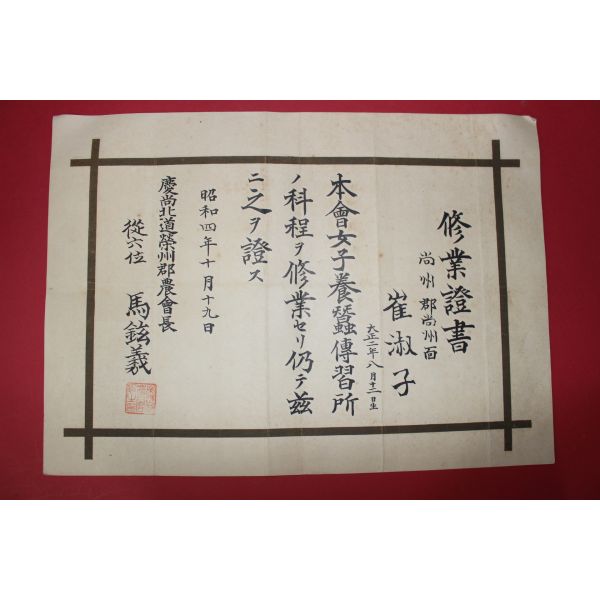 修業證書
尚州郡尚州面
崔淑子
大正二年八月十二日生
本會女子養蠶傳習所
ノ科程ヲ修業セリ仍テ玆
ニ之ヲ證ス
昭和四年十月十九日
慶尚北道榮州郡農會長
從六位 馬鉉義